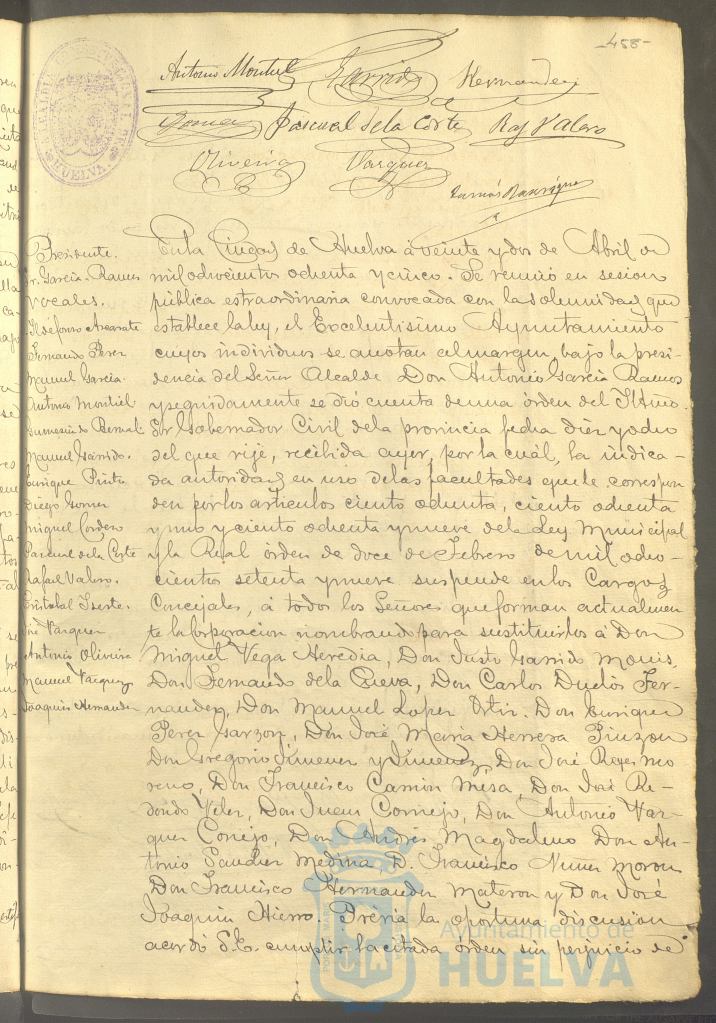 -458-
ALCALDIA CONSTITUCIONAL DE HUELVA
Antonio Montiel Garrido Hernandez
Gomez Pascual de la Corte Raf Valero
Oliveira Vazquez
Presidente.
Sr. Garcia Ramos
Vocales.
Ildefonso Azcarate
Fernando Perez
Manuel Garcia
Antonio Montiel
Gumesindo Bernal
Manuel Garrido.
Enrique Pinto
Diego Gomez
Miguel Cordero
Pascual de la Corte
Rafael Valero.
Cristobal Iserte.
José Vazquez
Antonio Oliveira
Manuel Vazquez
Joaquin Hernandez
En la Ciudad de Huelva á veinte y dos de Abril de
mil ochocientos ochenta y cinco. Se reunió en sesion
pública estraordinaria convocada con la solemnidad que
establece la ley, el Excelentisimo Ayuntamiento
cuyos individuos se anotan al margen, bajo la presi-
dencia del Señor Alcalde Don Antonio Garcia Ramos
y seguidamente se dió cuenta de una órden del Iltmo.
Sr Gobernador Civil de la provincia fecha diez y ocho
del que rije, recibida ayer, por la cuál, la indica-
da autoridad en uso de las facultades que le correspon
den por los articulos ciento ochenta, ciento ochenta
y uno y ciento ochenta y nueve de la Ley Municipal
y la Real órden de doce de Febrero de mil ocho-
cientos setenta y nueve suspende en los Cargos
Concejales, á todos los Señores que forman actualmen
te la Corporacion nombrando para sustituirlos á Don
Miguel Vega Heredia, Don Justo Garrido Mouis,
Don Fernando de la Cueva, Don Carlos Duclós Fer-
nandez, Don Manuel Lopez Ortiz. Don Enrique
Perez Garzon, Don José Maria Herrera Pinzon
Don Gregorio Jimenez y Jimenez, Don José Reyes Mo
reno, Don Francisco Camin Misa, Don José Re-
dondo Velez, Don Juan Cornejo, Don Antonio Vaz-
quez Conejo, Don Andrés Magdaleno Don An-
tonio Sanchez Medina D. Francisco Nuñez Moron
Don Francisco Hernandez Materon y Don José
Joaquin Hierro. Prévia la oportuna discusion
acordó S.E. cumplir la citada órden sin perjuicio de
Ayuntamiento de
HUELVA